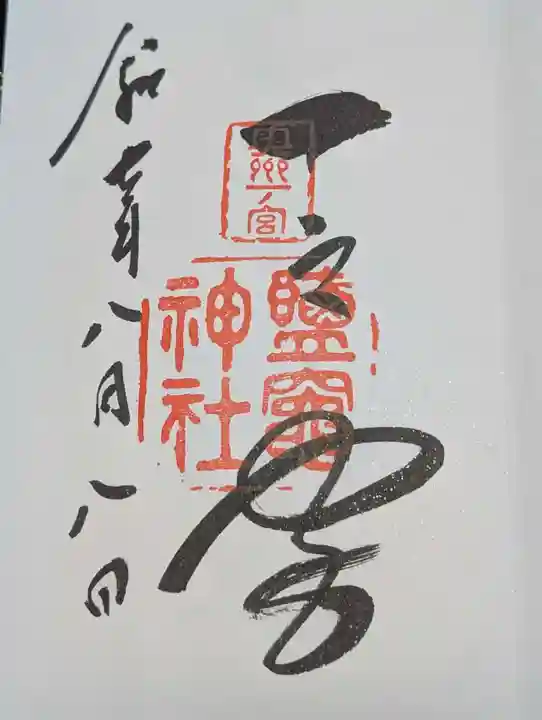 一之宮
奥州一宮
鹽竈
神社
令和
年八月八日